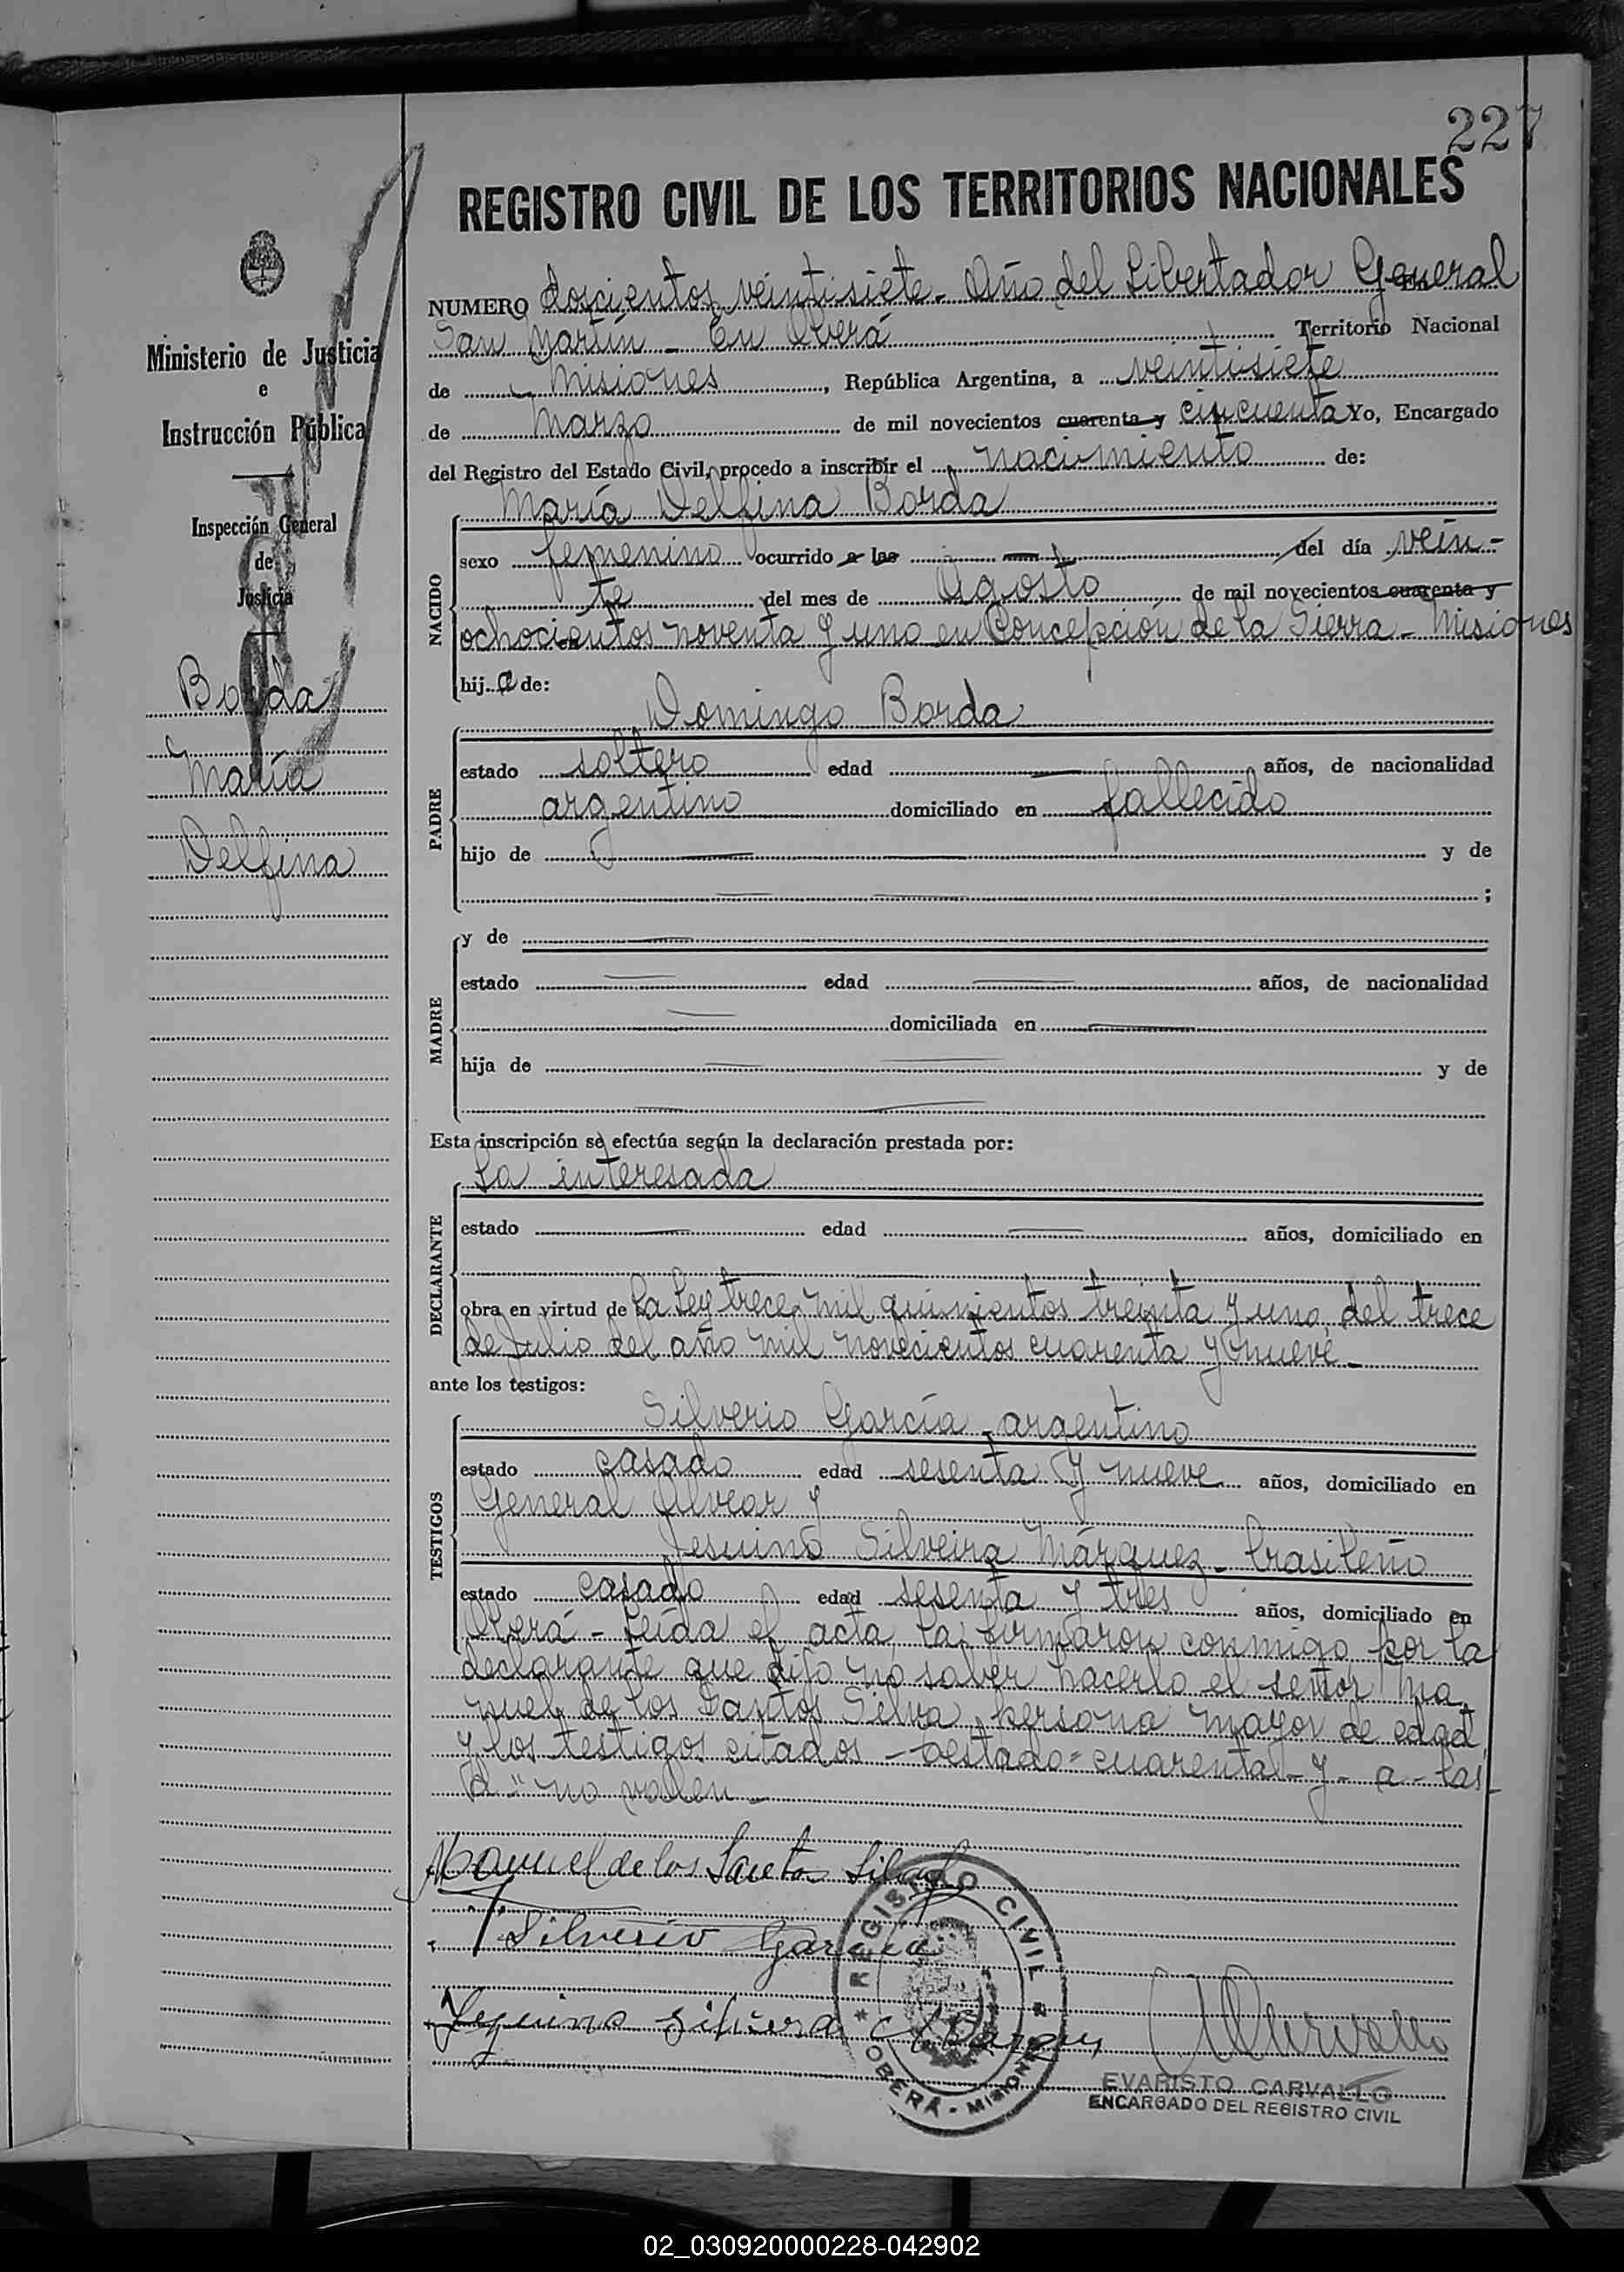 227
REGISTRO CIVIL DE LOS TERRITORIOS NACIONALES
Ministerio de Justicia
e
Instrucción Pública
Inspección General
de
Justicia
Borda
María
Delfina
NUMERO doscientos veintisiete - Año del Libertador General
San Martín - En Oberá Territorio Nacional
de Misiones, República Argentina, a veintisiete
de Marzo de mil novecientos cuarenta y cincuenta Yo, Encargado
del Registro del Estado Civil, procedo a inscribir el nacimiento de:
María Delfina Borda
NACIDO
sexo femenino ocurrido a las — del día vein-
te del mes de Agosto de mil novecientos cuarenta y
ochocientos noventa y uno en Concepción de la Sierra - Misiones
hija de:
PADRE
Domingo Borda
estado soltero edad — años, de nacionalidad
argentino domiciliado en fallecido
hijo de — — y de
— — ;
MADRE
y de —
estado — edad — años, de nacionalidad
— domiciliada en —
hija de — — y de
— —
Esta inscripción se efectúa según la declaración prestada por:
DECLARANTE
La interesada
estado — edad — años, domiciliado en
obra en virtud de la Ley trece mil quinientos treinta y uno, del trece
de Julio del año mil novecientos cuarenta y nueve -
ante los testigos:
TESTIGOS
Silverio García, argentino
estado casado edad sesenta y nueve años, domiciliado en
General Alvear y
Jesuino Silveira Márquez - brasileño
estado casado edad sesenta y tres años, domiciliado en
Oberá - Leída el acta la firmaron conmigo por la
declarante que dijo no saber hacerlo el señor Ma-
nuel de los Santos Silva, persona mayor de edad
y los testigos citados - Testado = cuarenta - y - a - las -
d" no valen -
Manuel de los Santos Silva
Silverio García
Jesuino Silveira Marquez
REGISTRO CIVIL
OBERÁ - MISIONES
EVARISTO CARVALLO
ENCARGADO DEL REGISTRO CIVIL
02_030920000228-042902